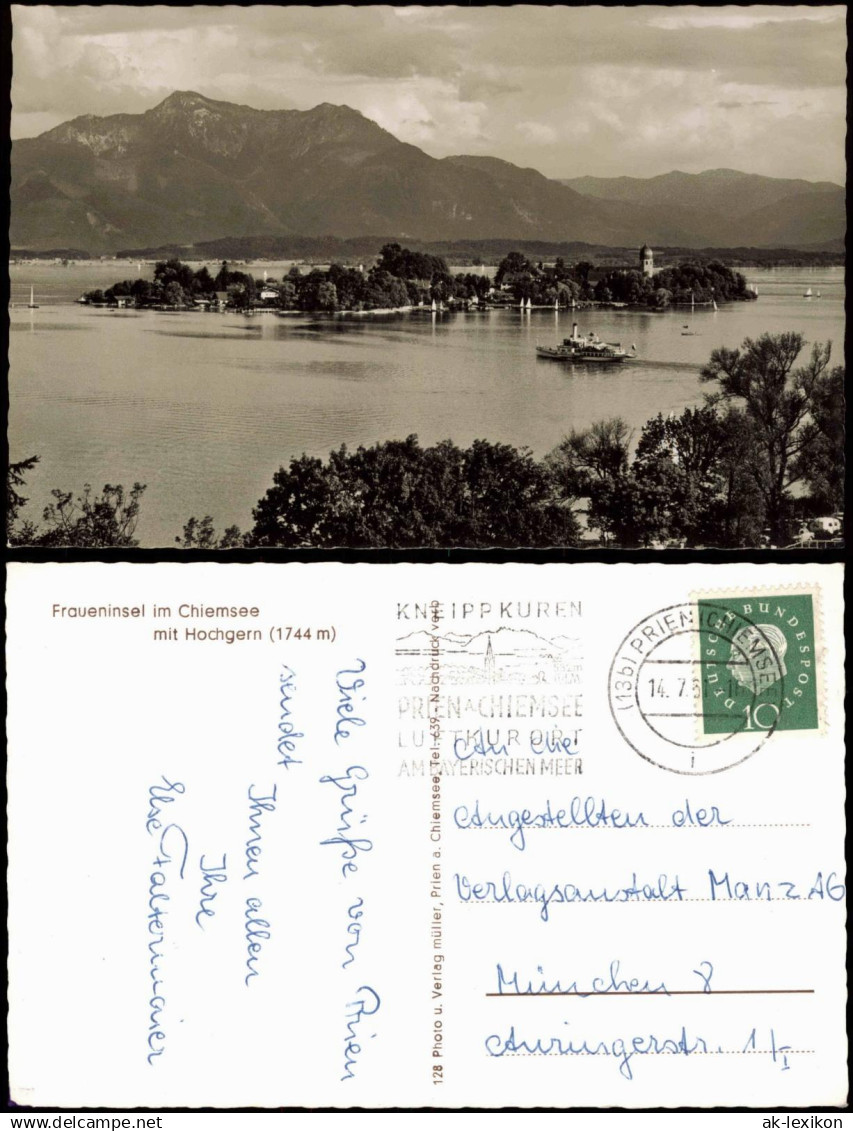 Fraueninsel im Chiemsee
mit Hochgern (1744 m)
KNEIPPKUREN
PRIEN A CHIEMSEE
LUFTKURORT
AM BAYERISCHEN MEER
(13b) PRIEN (CHIEMSEE)
14. 7. 61
i
DEUTSCHE BUNDESPOST
10
Viele Grüße von Prien
sendet
Ihnen allen
Ihre
Else Faltermaier
128 Photo u. Verlag müller, Prien a. Chiemsee, Tel. 639 - Nachdruck verb.
An die
Angestellten der
Verlagsanstalt Manz AG
München 8
Auringerstr. 1/I
www.ansichtskarten-lexikon.de
ak-lexikon.com